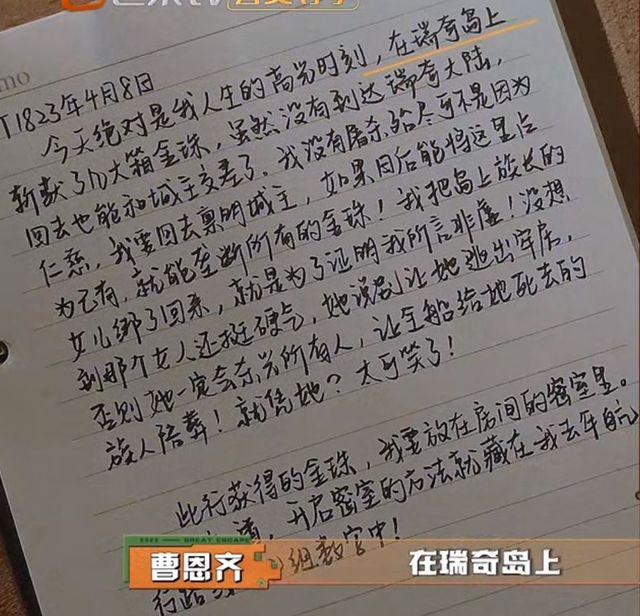 mo
T1823年4月8日
今天绝对是我人生的高光时刻,在瑞奇岛上
斩获了10大箱金珠,虽然没有到达瑞奇大陆,
回去也能和城主交差了。我没有屠杀殆尽可不是因为
仁慈,我要回去禀明城主,如果日后能将这里占
为己有,就能垄断所有的金珠!我把岛上族长的
女儿绑了回来,就是为了证明我所言非虚!没想
到那个女人还挺硬气,她说别让她逃出牢房,
否则她一定会杀光所有人,让全船给她死去的
族人陪葬!就凭她?太可笑了!
此行获得的金珠,我要放在房间的密室里。
道,开启密室的方法就藏在我去年航
行路 组数字中!
GREAT ESCAPE
曹恩齐 在瑞奇岛上